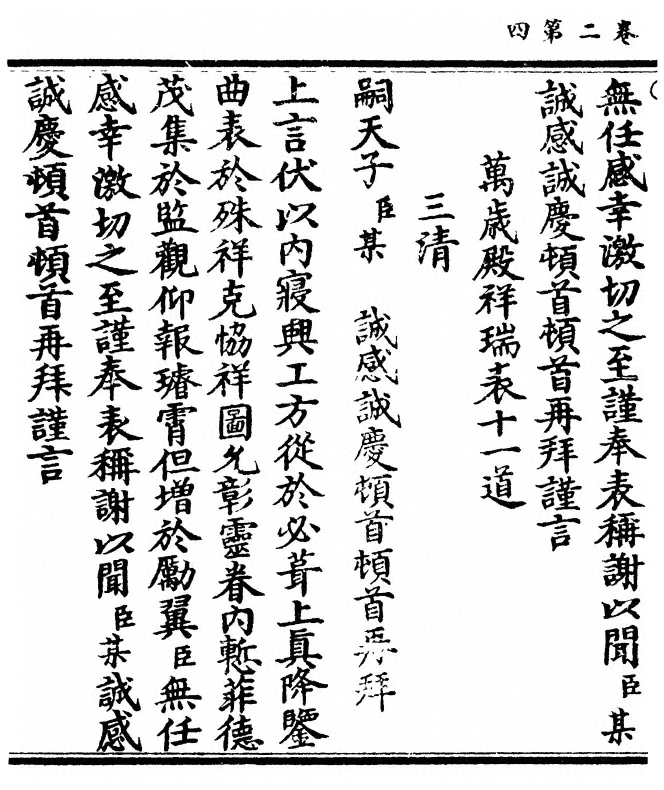 卷二第四
無任感幸激切之至謹奉表稱謝以聞臣某
誠感誠慶頓首頓首再拜謹言
萬歲殿祥瑞表十一道
三清
嗣天子臣某 誠感誠慶頓首頓首再拜
上言伏以內寢興工方從於必葺上眞降鑒
曲表於殊祥克恊祥圖允彰靈眷內慙菲德
茂集於監觀仰報璿霄但增於勵翼臣無任
感幸激切之至謹奉表稱謝以聞臣某誠感
誠慶頓首頓首再拜謹言